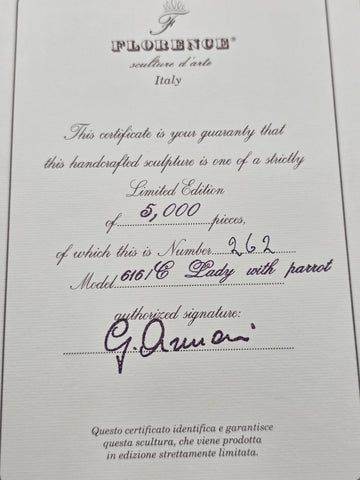 F
FLORENCE®
sculture d'arte
Italy
This certificate is your guaranty that
this handcrafted sculpture is one of a strictly
Limited Edition
of 5,000 pieces,
of which this is Number 262
Model 616/C Lady with parrot
authorized signature:
G. Armani
Questo certificato identifica e garantisce
questa scultura, che viene prodotta
in edizione strettamente limitata.